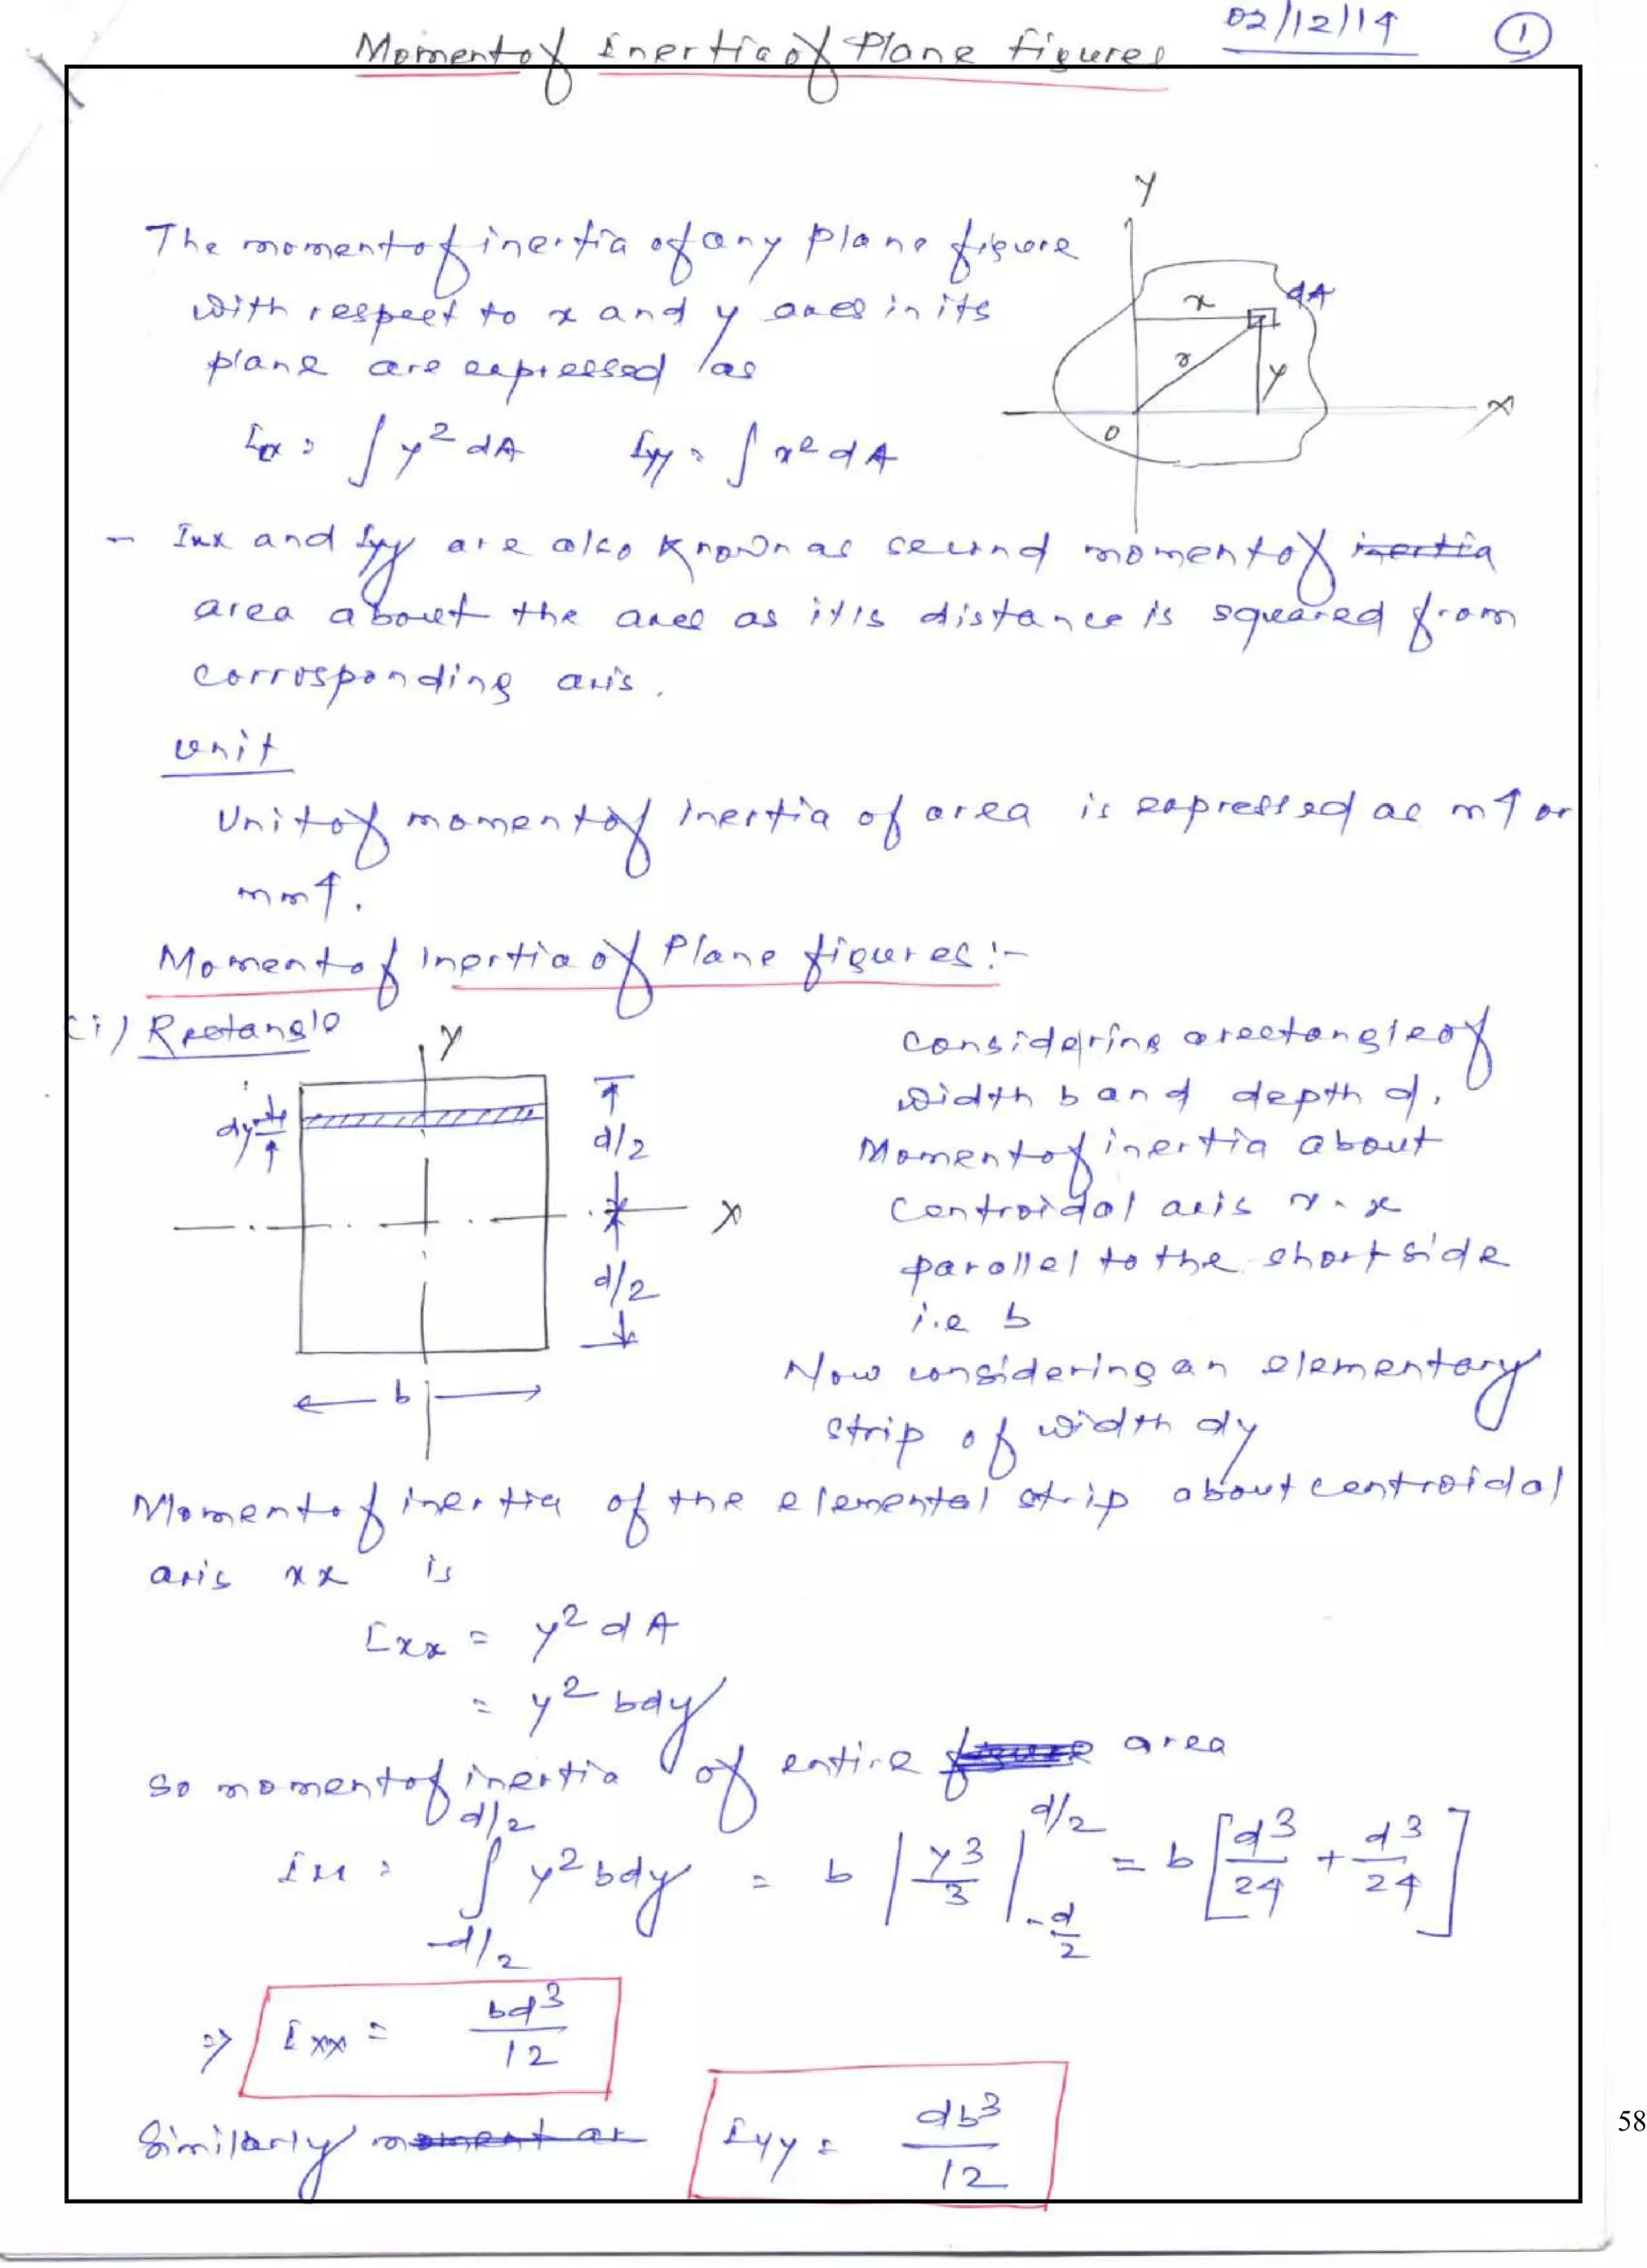 Moment of Inertia of Plane figures 02/12/14 1
The moment of inertia of any plane figure
with respect to x and y axes in its
plane are expressed as
Ixx = ∫ y² dA Iyy = ∫ x² dA
Y
x
dA
r
y
X
O
- Ixx and Iyy are also known as second moment of inertia
area about the axes as it is distance is squared from
corrosponding axis.
Unit
Unit of moment of inertia of area is expressed as m4 or
mm4.
Moment of Inertia of Plane figures :-
(i) Rectangle
Y
dy
d/2
X
d/2
b
Considering a rectangle of
width b and depth d.
Moment of inertia about
centroidal axis x-x
parallel to the short side
i.e b
Now considering an elementary
strip of width dy
Moment of inertia of the elemental strip about centroidal
axis xx is
Ixx = y² dA
= y² bdy
So moment of inertia of entire figure area
Ixx = ∫_{-d/2}^{d/2} y² bdy = b | y³/3 |_{-d/2}^{d/2} = b [ d³/24 + d³/24 ]
⇒ Ixx = bd³/12
Similarly moment or Iyy = db³/12
58